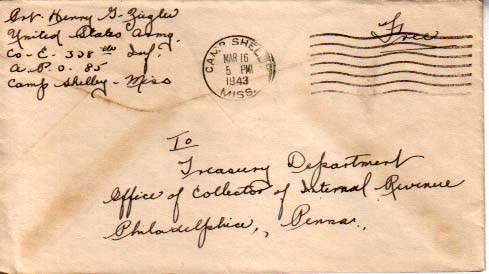 Pvt Henry G. Ziegler
United States Army
Co - E - 338th Inf.
A. P. O. 85
Camp Shelby - Miss
CAMP SHELBY
MAR 16
5 PM
1943
MISS.
Free
To
Treasury Department
Office of Collector of Internal Revenue
Philadelphia, Penna.,